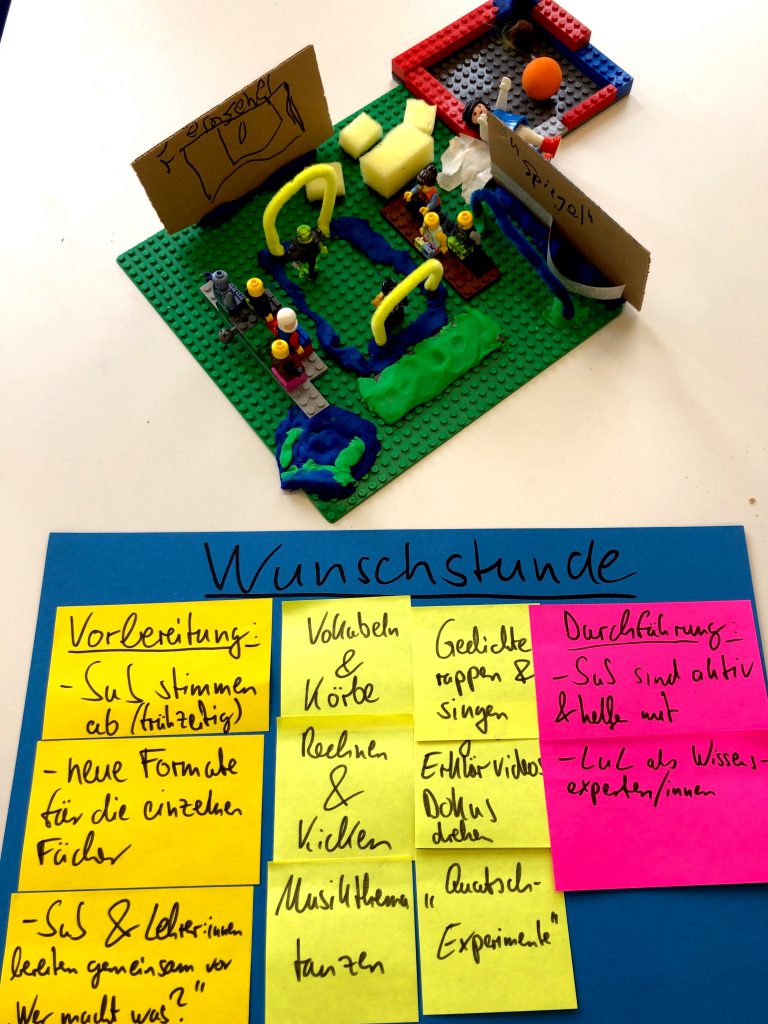 Fernseher
"Spiegel"
Wunschstunde
Vorbereitung:
- SuS stimmen
ab (frühzeitig)
- neue Formate
für die einzelnen
Fächer
- SuS & Lehrer:innen
bereiten gemeinsam vor
"Wer macht was?"
Vokabeln
&
Körbe
Rechnen
&
Kicken
Musikthema
tanzen
Gedichte
rappen &
singen
Erklärvideos
Dokus
drehen
"Quatsch-
Experimente"
Durchführung:
- SuS sind aktiv
& helfen mit
- LuL als Wissens-
experten/innen